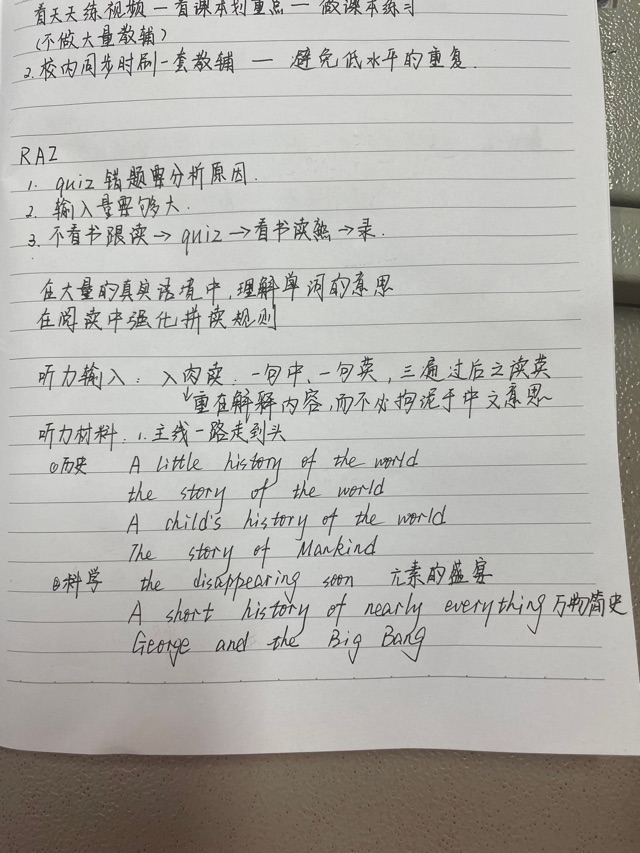 看天天练视频 — 看课本划重点 — 做课本练习
(不做大量教辅)
2. 校内同步时刷一套教辅 — 避免低水平的重复.
RAZ
1. quiz 错题要分析原因.
2. 输入量要够大.
3. 不看书跟读→ quiz →看书读熟→录.
在大量的真实语境中,理解单词的意思
在阅读中强化拼读规则
听力输入: 入肉读. 一句中、一句英, 三遍过后之读英
↓重在解释内容,而不必拘泥于中文意思~
听力材料. 1. 主线一路走到头
①历史 A little history of the world
the story of the world
A child's history of the world
The story of Mankind
②科学 the disappearing soon 元素的盛宴
A short history of nearly everything 万物简史
George and the Big Bang